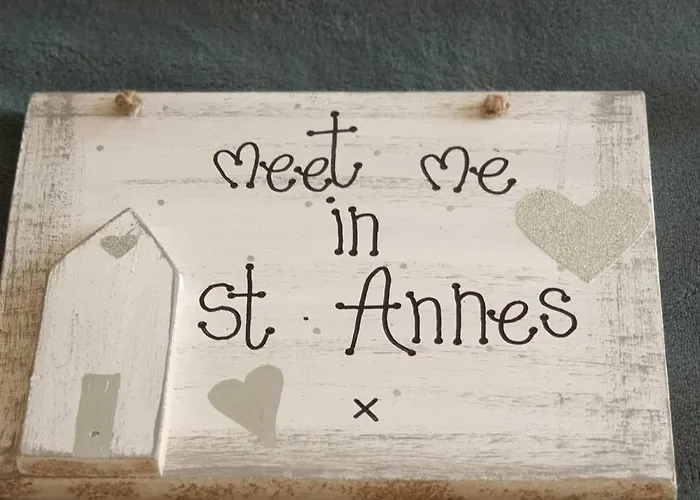 meet me
in
st . Annes
x